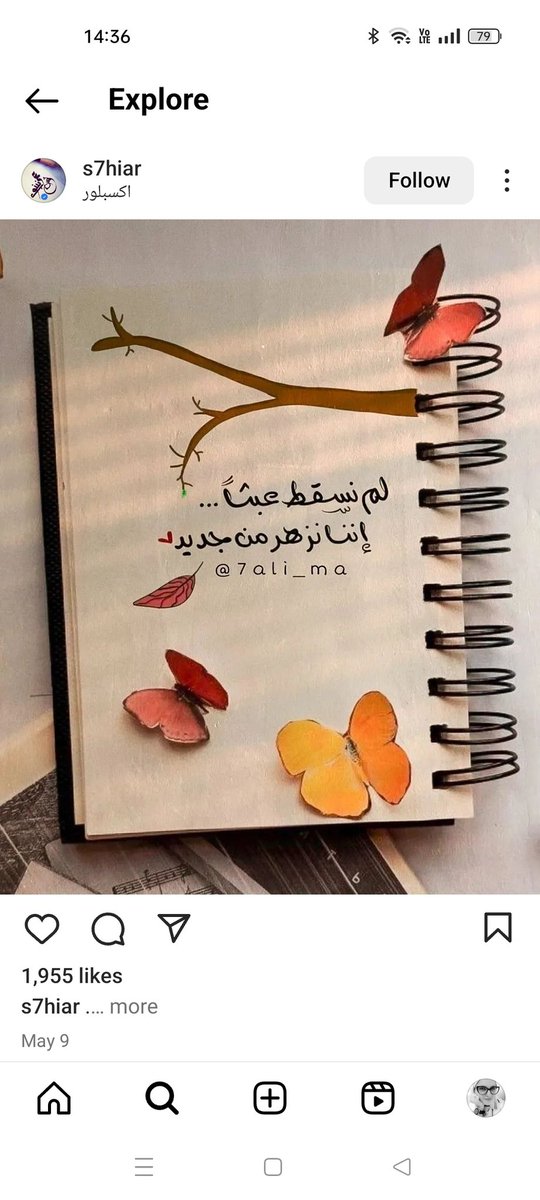 14:36
Vo LTE
79
Explore
s7hiar
اكسبلور
Follow
لم نسقط عبثاً...
إننا نزهر من جديد
@7ali_ma
6
1,955 likes
s7hiar .... more
May 9